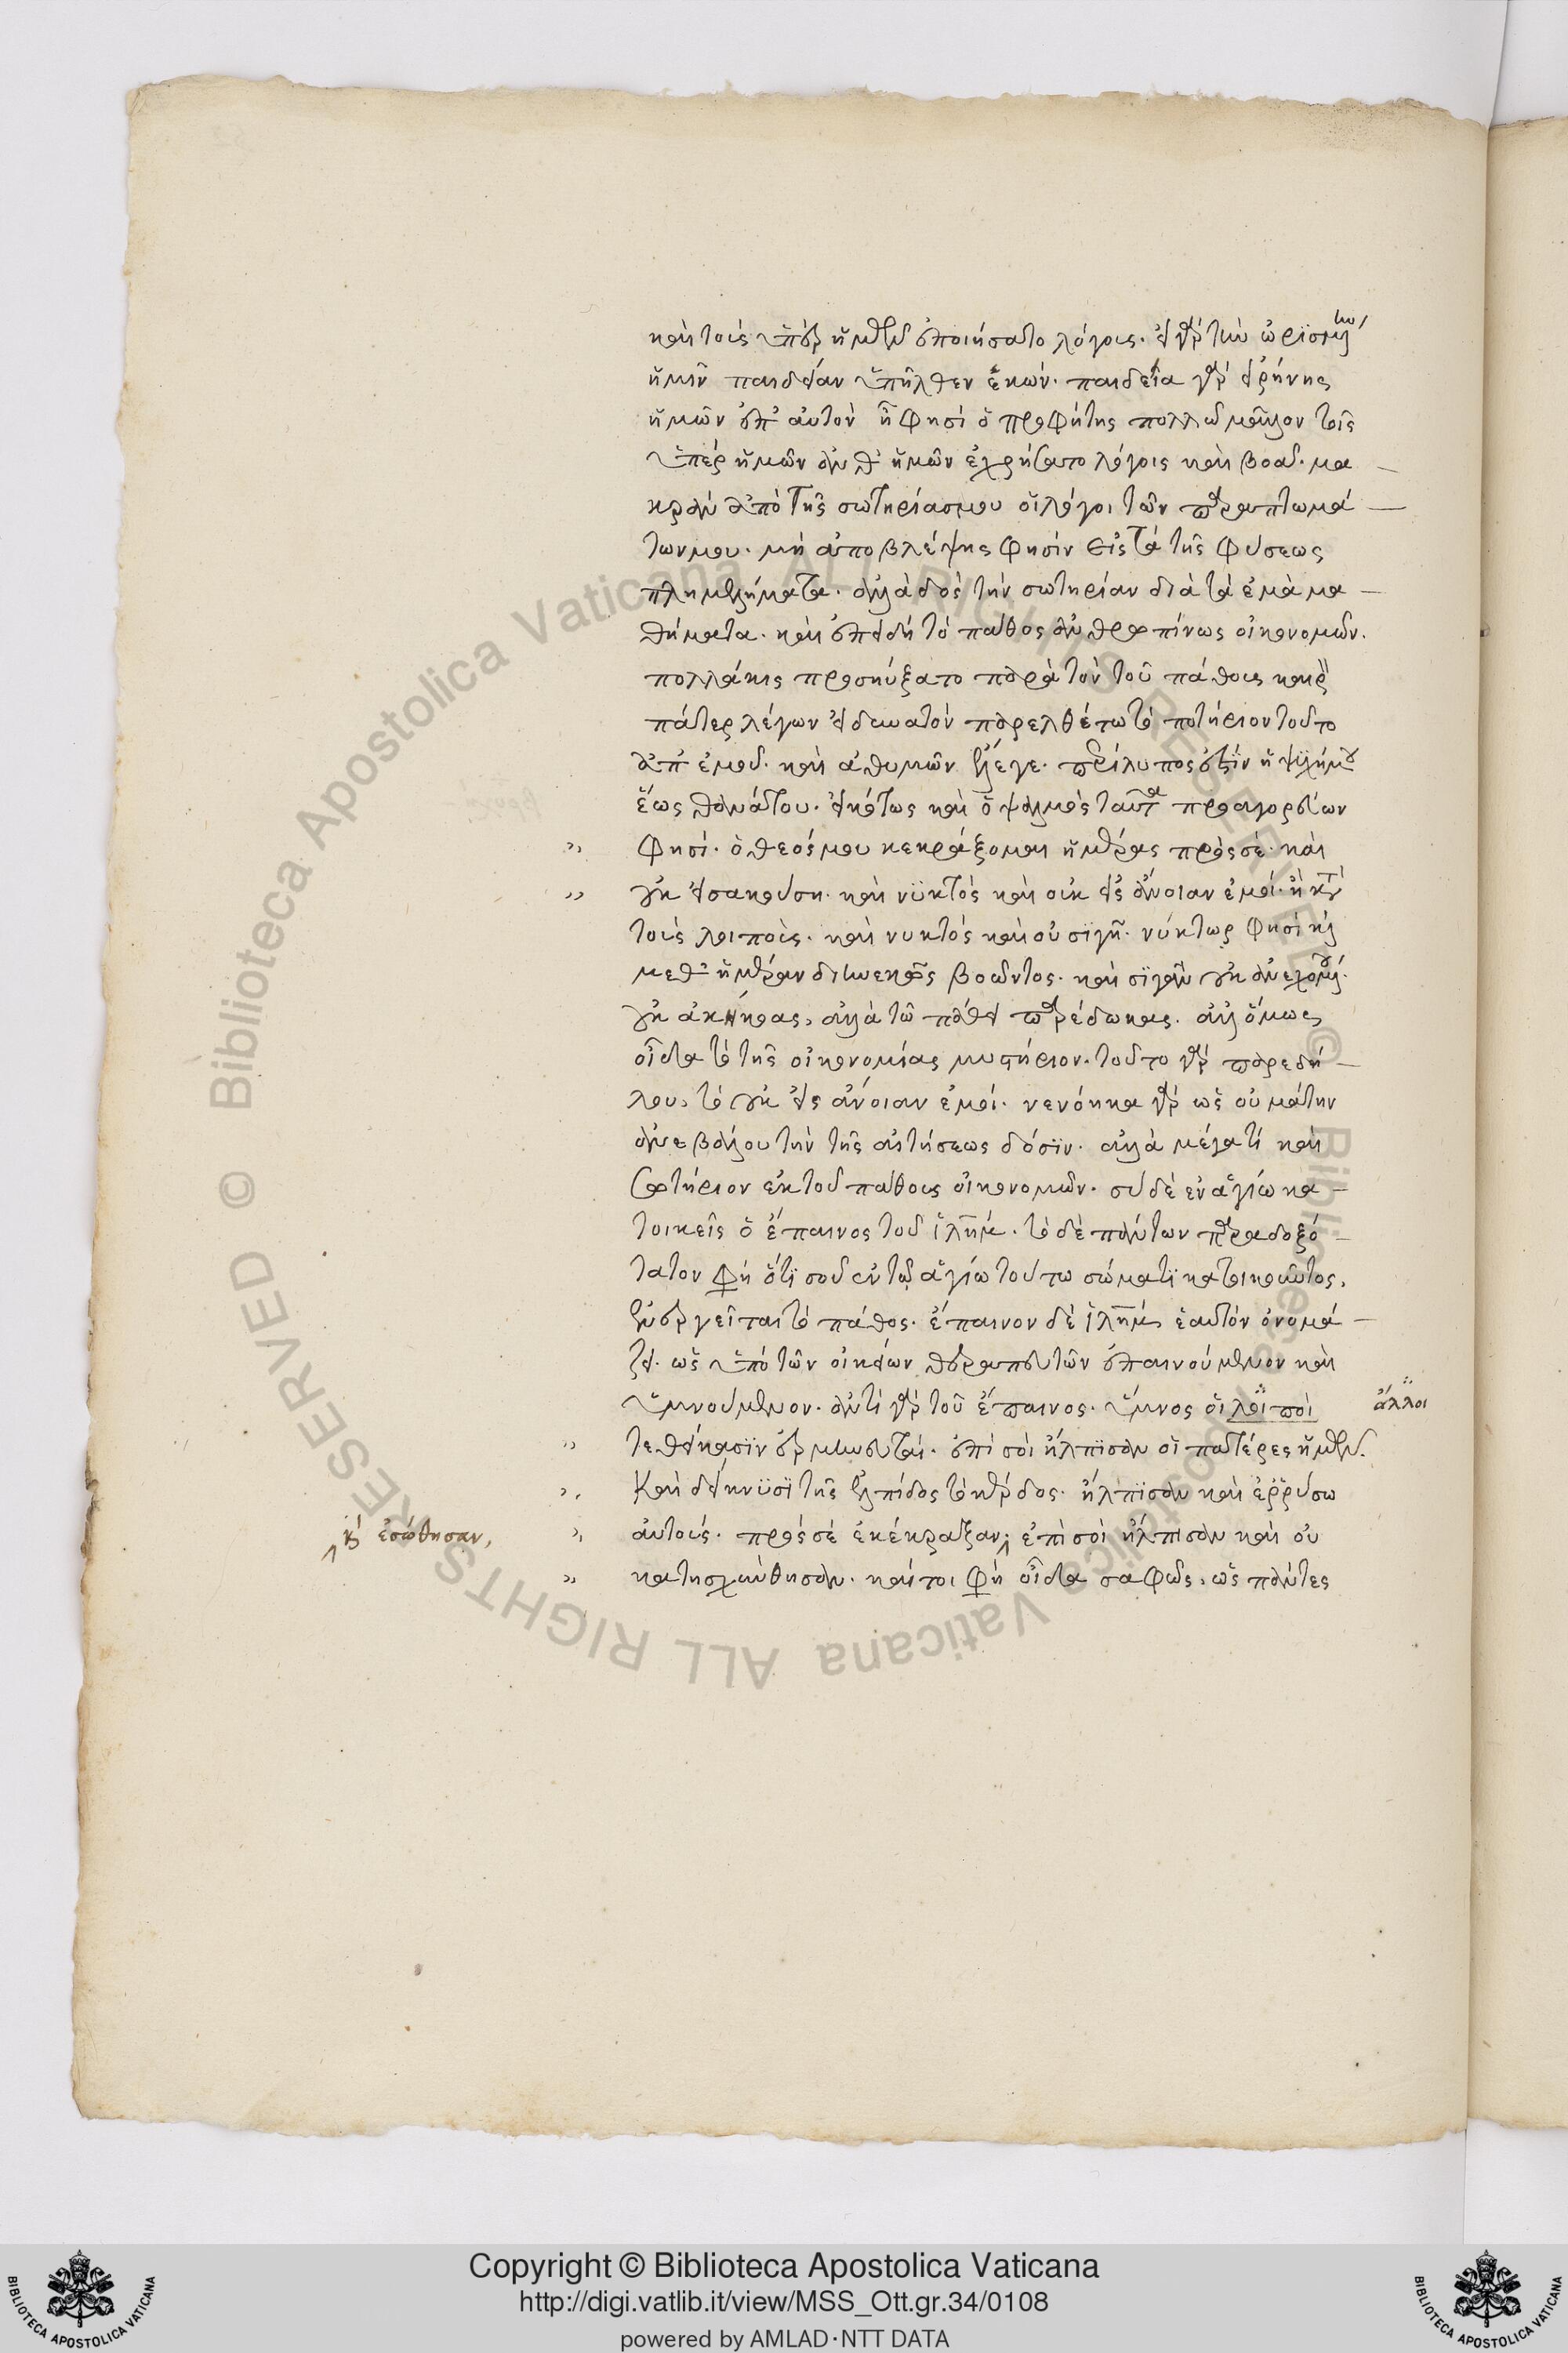 καὶ τοὺς ὑπὲρ ἡμῶν ἐποιήσατο λόγους. εἰ γὰρ τὴν ὡρισμένην
ἡμῖν παιδείαν ὑπῆλθεν ἑκών. παιδεία γὰρ εἰρήνης
ἡμῶν ἐπ' αὐτὸν ᾗ φησὶ ὁ προφήτης πολλῶ μᾶλλον τοῖς
ὑπὲρ ἡμῶν ἀνθ' ἡμῶν ἐχρήσατο λόγοις καὶ βοᾶ. μα
κρὰν ἀπὸ τῆς σωτηρίας μου οἱ λόγοι τῶν παραπτωμά
των μου. μὴ ἀποβλέψης φησὶν εἰς τὰ τῆς φύσεως
πλημελήματα. ἀλλὰ δὸς τὴν σωτηρίαν διὰ τὰ ἐμὰ μα
θήματα. καὶ ἐπειδὴ τὸ πάθος ἀνθρωπίνως οἰκονομῶν.
πολλάκις προσηύξατο παρὰ τὸν τοῦ πάθους καιρὸν
πάτερ λέγων εἰ δυνατὸν παρελθέτω τὸ ποτήριον τοῦτο
ἀπ' ἐμοῦ. καὶ ἀθυμῶν ἔλεγε. περίλυπος ἐστὶν ἡ ψυχή μου
ἕως θανάτου. εἰκότως καὶ ὁ ψαλμὸς ταῦτα προαγορεύων
φησί. ὁ θεός μου κεκράξομαι ἡμέρας πρὸς σὲ. καὶ
οὐκ εἰσακούση. καὶ νϋκτὸς καὶ οὐκ εἰς ἄνοιαν ἐμοί. ἢ κατὰ
τοὺς λοιποὺς. καὶ νυκτὸς καὶ οὐ σϊγῆ. νύκτωρ φησὶ καὶ
μεθ' ἡμέραν διηνεκῶς βοῶντος. καὶ σϊγᾶν οὐκ ἀνεχομένου.
οὐκ ἀκήκοας, ἀλλὰ τῶ πάθει παρέδωκας. ἀλλ' ὅμως
οἶδα τὸ τῆς οἰκονομίας μυστήριον. τοῦτο γὰρ παρεδή
λου, τὸ οὐκ εἰς ἄνοιαν ἐμοί. νενόηκα γὰρ ὡς οὐ μάτην
ἀνεβάλλου τὴν τῆς αἰτήσεως δόσϊν. ἀλλὰ μέγα τί καὶ
σωτήριον ἐκ τοῦ πάθους οἰκονομῶν. σὺ δὲ ἐν ἁγίω κα
τοικεῖς ὁ ἔπαινος τοῦ ἰλήμ. τὸ δὲ πάντων παραδοξό
τατον φη ὅτϊ σοῦ ἐν τῶ ἁγίω τούτω σώματϊ κατοικοῦντος,
ἐνεργεῖται τὸ πάθος. ἔπαινον δὲ ἰλήμ ἑαυτὸν ὀνομά
ζει. ὡς ὑπὸ τῶν οἰκείων θεραπευτῶν ἐπαινούμενον καὶ
ὑμνούμενον. ἀντὶ γὰρ τοῦ ἔπαινος. ὕμνος οἱ λοιποὶ
ἄλλοι
τεθείκασϊν ἑρμηνευταί. ἐπὶ σοὶ ἤλπϊσαν οἱ πατέρες ἡμῶν.
Καὶ δείκνϋσϊ τῆς ἐλπίδος τὸ κέρδος. ἤλπϊσαν καὶ ἐρρύσω
αὐτούς. πρὸς σὲ ἐκέκραξαν, ἐπὶ σοὶ ἤλπισαν καὶ οὐ
καὶ ἐσώθησαν,
κατησχύνθησαν. καίτοι φη οἶδα σαφῶς, ὡς πάντες
Copyright © Biblioteca Apostolica Vaticana
http://digi.vatlib.it/view/MSS_Ott.gr.34/0108
powered by AMLAD·NTT DATA
BIBLIOTECA APOSTOLICA VATICANA
BIBLIOTECA APOSTOLICA VATICANA
© Biblioteca Apostolica Vaticana ALL RIGHTS RESERVED
© Biblioteca Apostolica Vaticana ALL RIGHTS RESERVED